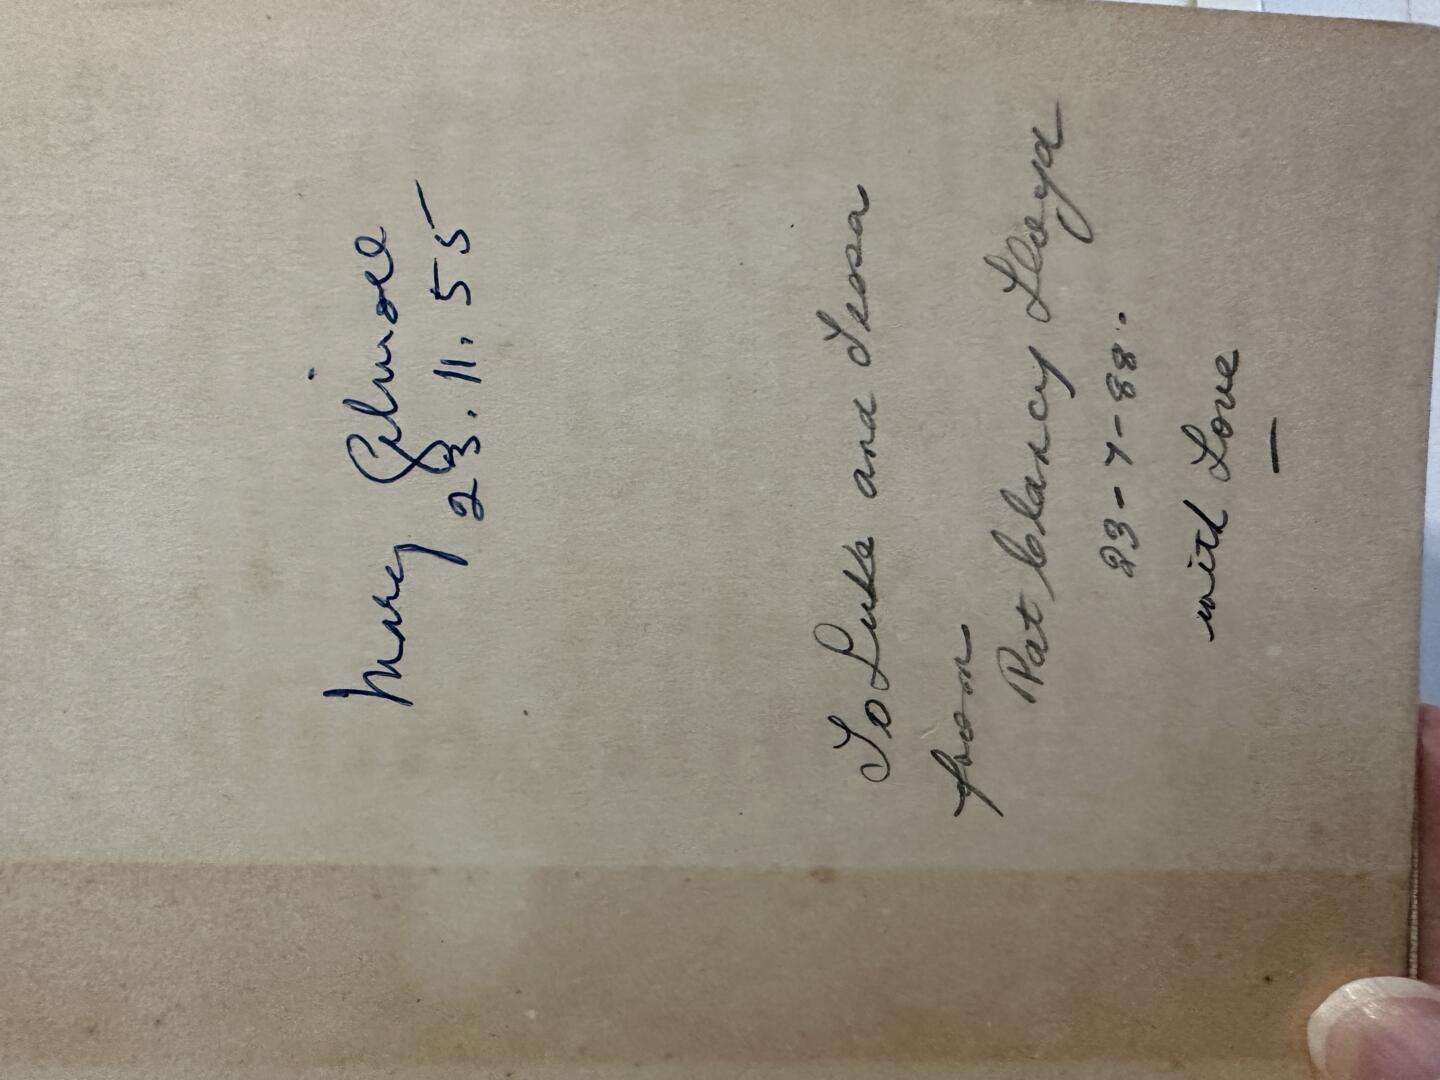 Mary Gilmore
23.11.55
To Luke and Tessa
from
Pat Clancy Lloyd
23-7-88.
with Love